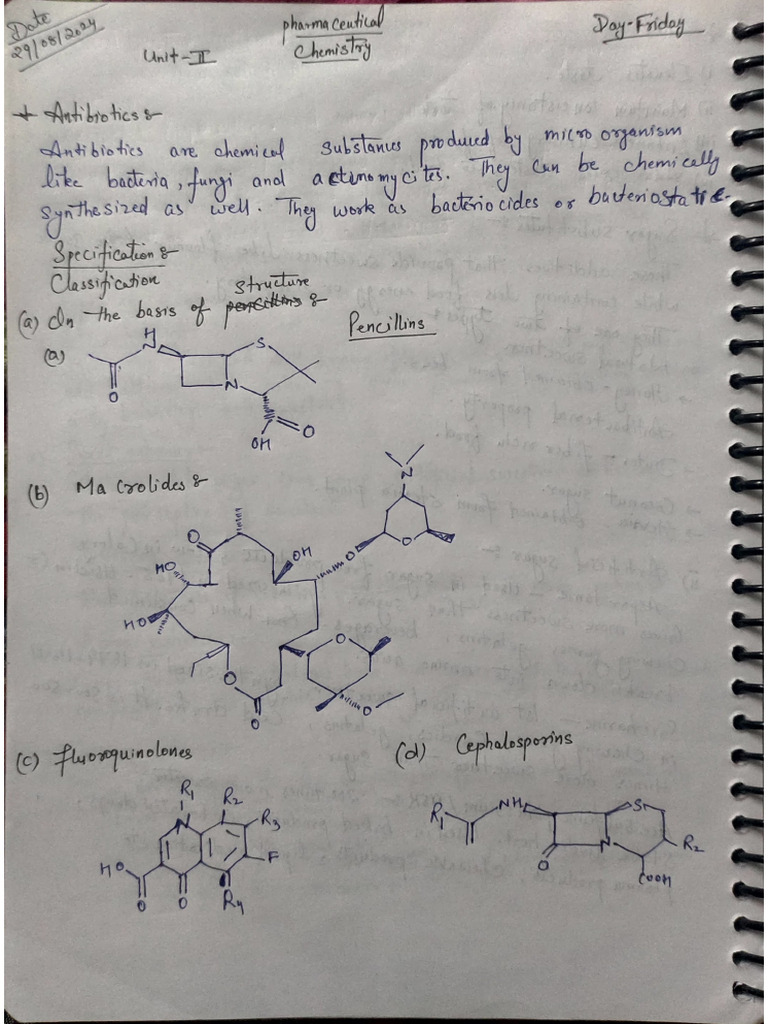 Date
29/08/2024
pharmaceutical
Chemistry
Day-Friday
Unit-II
* Antibiotics :-
Antibiotics are chemical substances produced by micro organism
like bacteria, fungi and actinomycites. They can be chemically
synthesized as well. They work as bacteriocides or bacteriostatic.
Specification :-
Classification
(a) On the basis of structure :-
Pencillins
(a)
H
N
S
N
O
OH
O
(b) Macrolides :-
N
O
O
O
OH
HO
HO
O
O
O
O
(c) Fluoroquinolones
R1
N
R2
R3
F
HO
O
O
R4
(d) Cephalosporins
R1
NH
S
N
R2
O
COOH